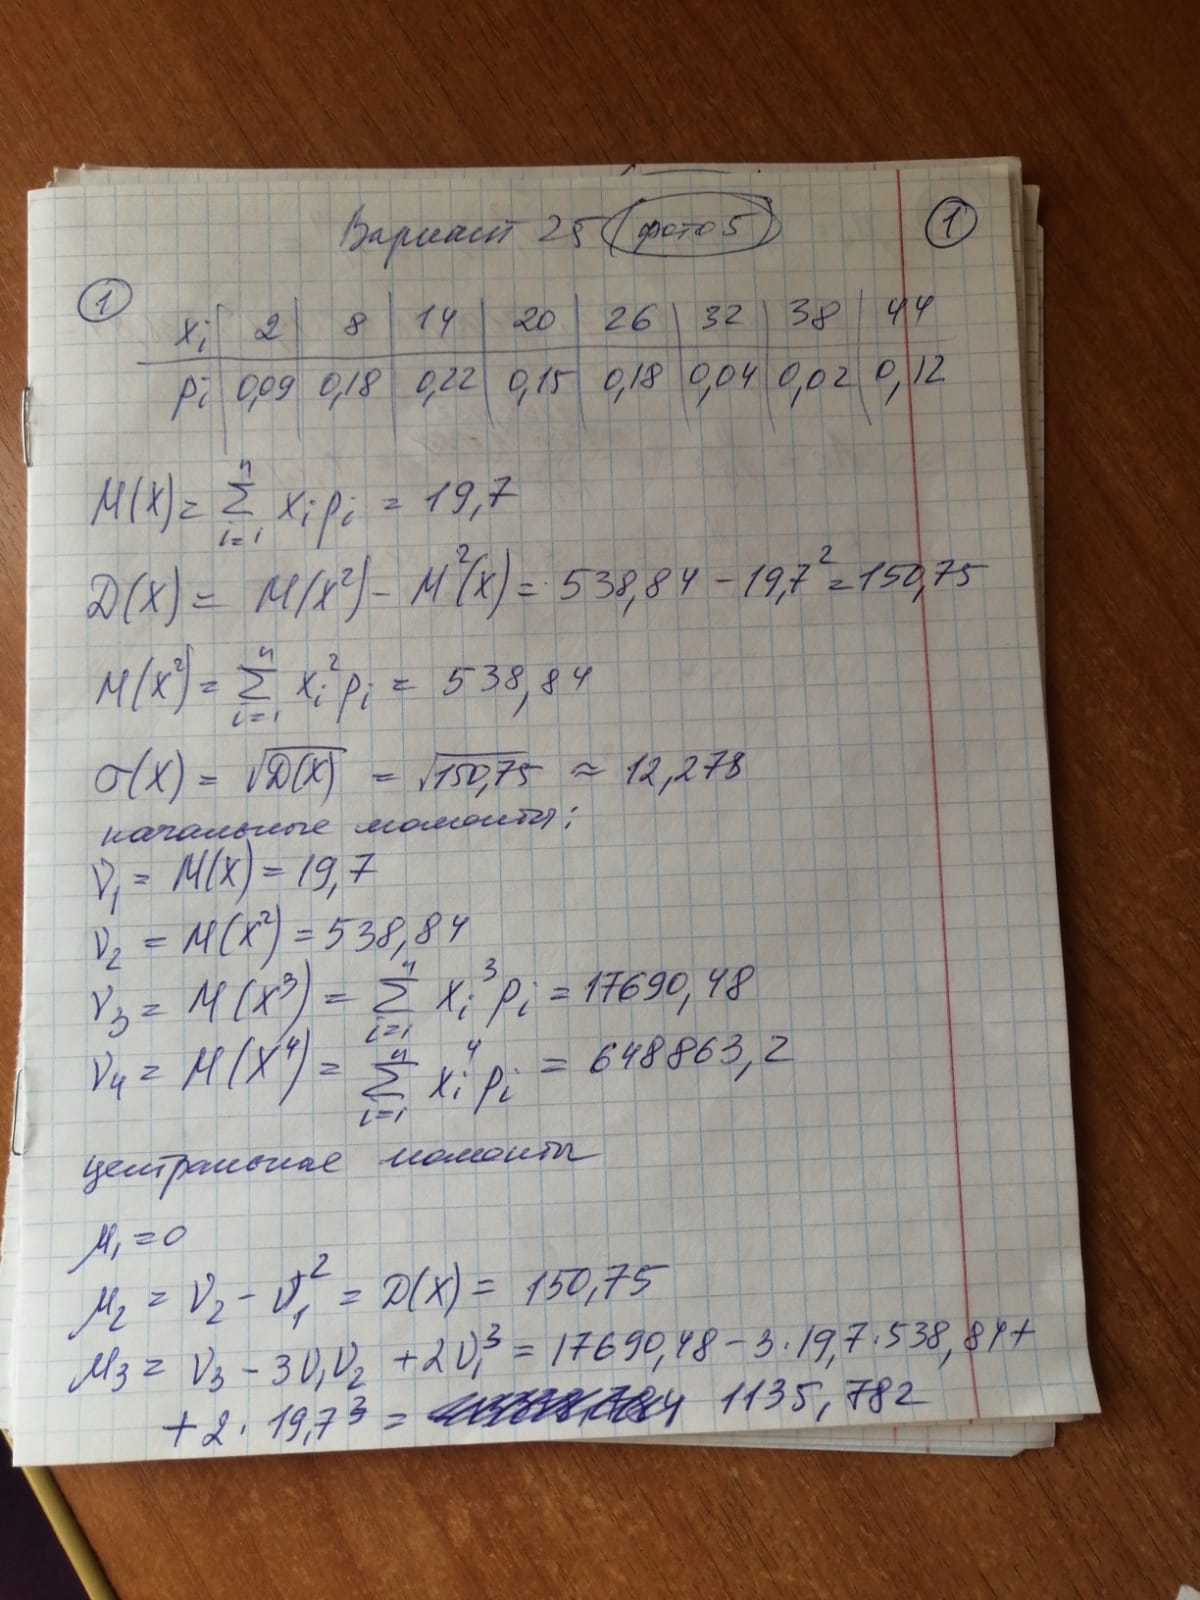 Вариант 25 (фото 5) 1
1
xi 2 8 14 20 26 32 38 44
pi 0,09 0,18 0,22 0,15 0,18 0,04 0,02 0,12
M(X) = Σ xi pi = 19,7
n
i=1
D(X) = M(X²) - M²(X) = 538,84 - 19,7² = 150,75
M(X²) = Σ xi² pi = 538,84
n
i=1
σ(X) = √D(X) = √150,75 ≈ 12,278
начальные моменты:
ν₁ = M(X) = 19,7
ν₂ = M(X²) = 538,84
ν₃ = M(X³) = Σ xi³ pi = 17690,48
n
i=1
ν₄ = M(X⁴) = Σ xi⁴ pi = 648863,2
n
i=1
центральные моменты
μ₁ = 0
μ₂ = ν₂ - ν₁² = D(X) = 150,75
μ₃ = ν₃ - 3ν₁ν₂ + 2ν₁³ = 17690,48 - 3·19,7·538,84 +
+ 2·19,7³ = 1135,782